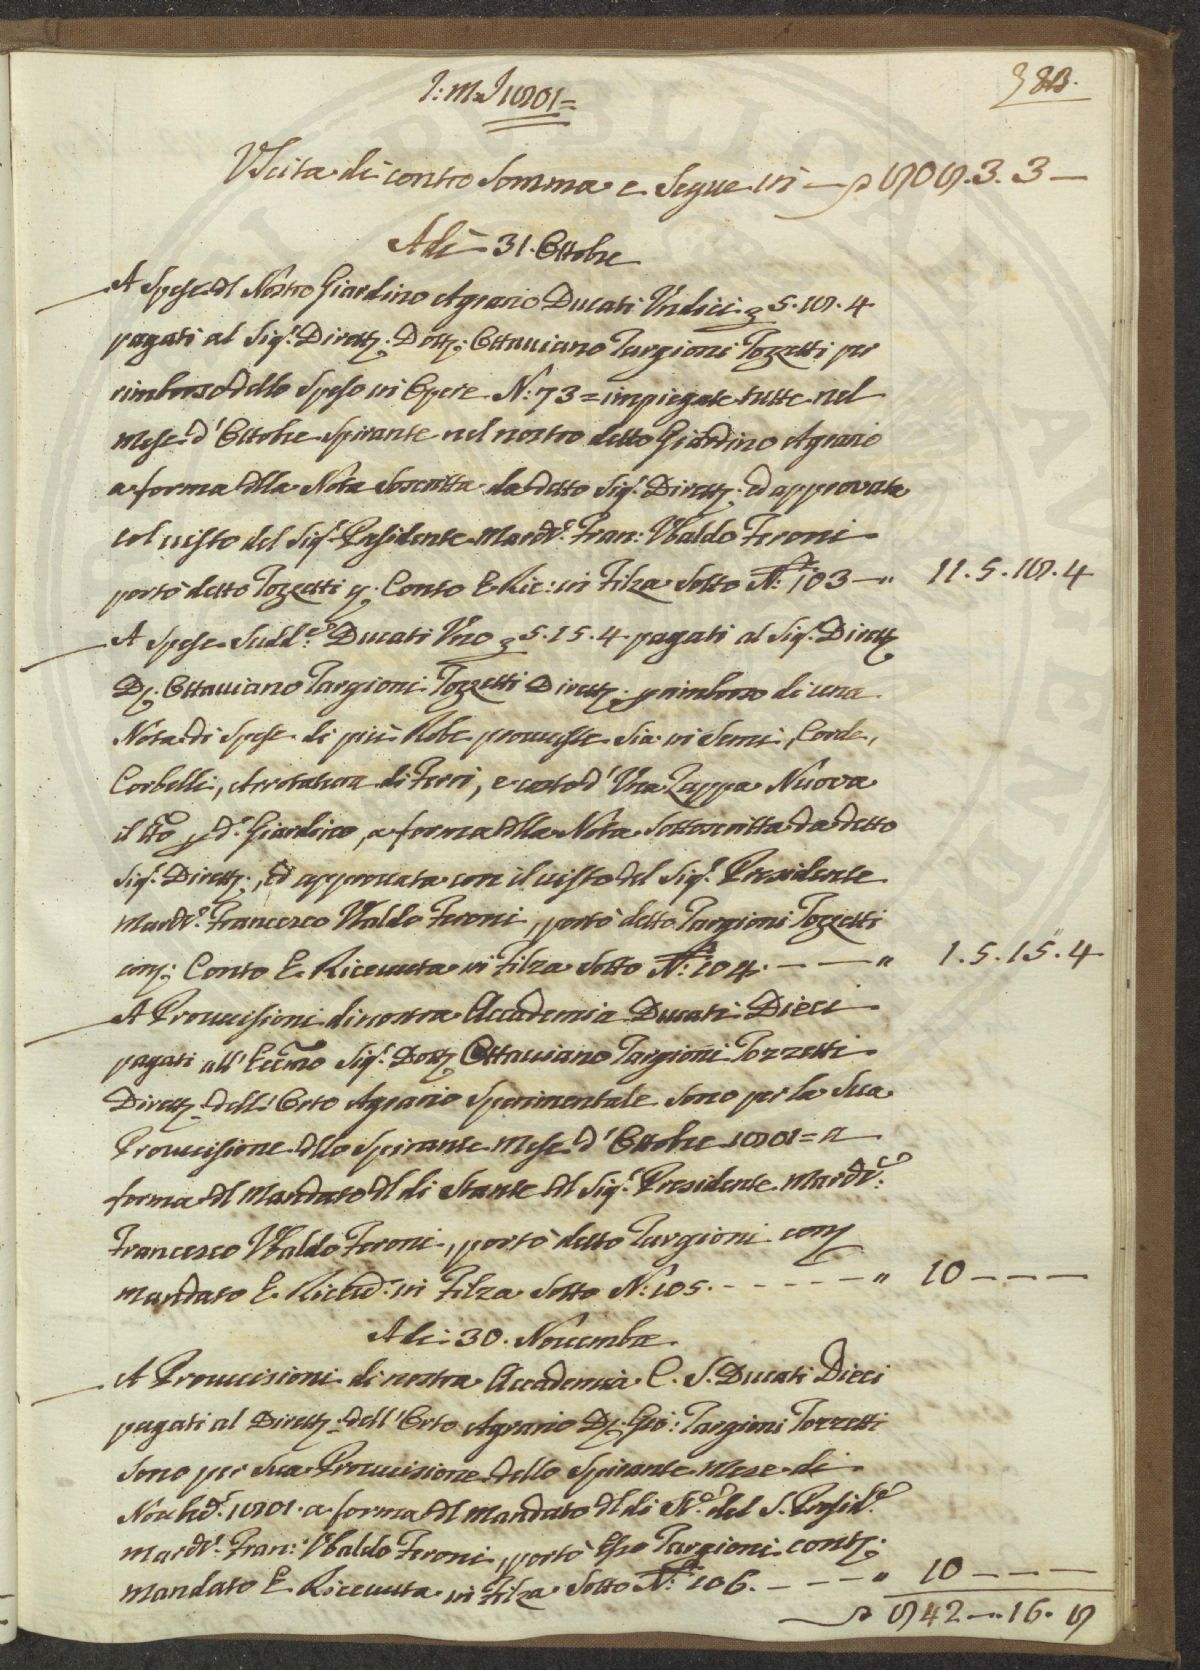 I: M: J 1801=
383.
Uscita di contro Somma e Segue in — 809.3.3—
Adì 31. Ottobre
A Spese dl Nostro Giardino Agrario Ducati Undici 5.18.4
pagati al Sig.r Dirett.; Dott.; Ottaviano Targioni Tozzetti per
rimborso dello Speso in Opere N.º 73= impiegate tutte nel
Mese d'Ottobre Spirante nel nostro detto Giardino Agrario
a forma dlla Nota Soscritta da detto Sig.r Dirett.; ed approvata
col visto del Sig.r Presidente Marche.: Fran: Ubaldo Feroni
portò detto Tozzetti p. Conto E Ric: in Filza Sotto N.º 103—" 11.5.18.4
A Spese Sudd.e Ducati Uno 5.15.4 pagati al Sig.r Dirett.
D.; Ottaviano Targioni Tozzetti Dirett.; p rimborso di una
Nota di Spese di più Robe provviste Sia in Semi, Corde,
Corbelli, Arrotatura di Ferri, e costo d'Una Zappa Nuova
il tto p d.o Giardino, a forma dlla Nota Sottoscritta da detto
Sig.r Dirett.;, ed approvata con il visto del Sig.r Presidente
March.: Francesco Ubaldo Feroni, portò detto Targioni Tozzetti
con; Conto E Ricevuta in Filza Sotto N.º 104.———" 1.5.15.4
A Provvisioni di nostra Accademia Ducati Dieci
pagati all'Eccmo Sig.r Dott. Ottaviano Targioni Tozzetti
Dirett. dell'Orto Agrario Sperimentale Sono per la Sua
Provvisione dllo Spirante Mese d'Ottobre 1801= a
forma dl Mandato dl dì Stante dl Sig.r Presidente March.:
Francesco Ubaldo Feroni, portò detto Targioni con
mandato E Ricevd.: in Filza Sotto N.º 105.------" 10———
Adì: 30. Novembre
A Provvisioni di nostra Accademia C. S. Ducati Dieci
pagati al Dirett. dell'Orto Agrario D.; Targioni Tozzetti
Sono per Sua Provvisione dello Spirante Mese di
Novbre. 1801. a forma dl Mandato dl dì St.e del S. Presid.e
March.: Fran: Ubaldo Feroni, portò Esso Targioni con;
Mandato E Ricevuta in Filza Sotto N.º 106.———" 10———
842—.16.8